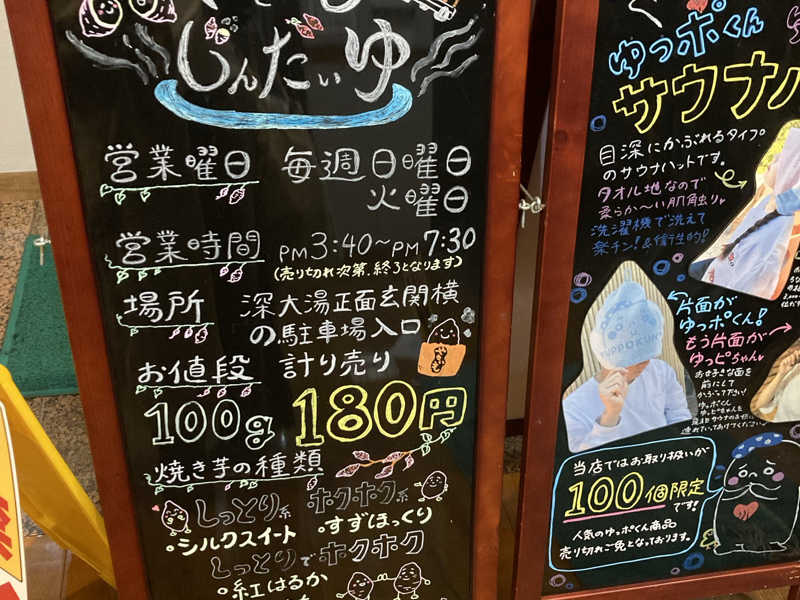 じんだぃゆ
営業曜日 毎週日曜日
火曜日
営業時間 PM3:40~PM7:30
(売り切れ次第、終了となります)
場所 深大湯正面玄関横
の駐車場入口
お値段 計り売り
100g 180円
焼き芋の種類
しっとり系 ホクホク系
・シルクスイート ・すずほっくり
しっとりでホクホク
・紅はるか
ゆっポくん
サウナハ
目深にかぶれるタイプ
のサウナハットです。
タオル地なので
柔らか〜い肌触り
洗濯機で洗えて
楽チン!&衛生的!
片面が
ゆっポくん!
もう片面が
ゆっピちゃん
お好きな面を
前にして
かぶって下さい!
YUPPOKUN
当店ではお取り扱いが
100個限定
です!
人気のゆっポくん商品
売り切れご免となっております。